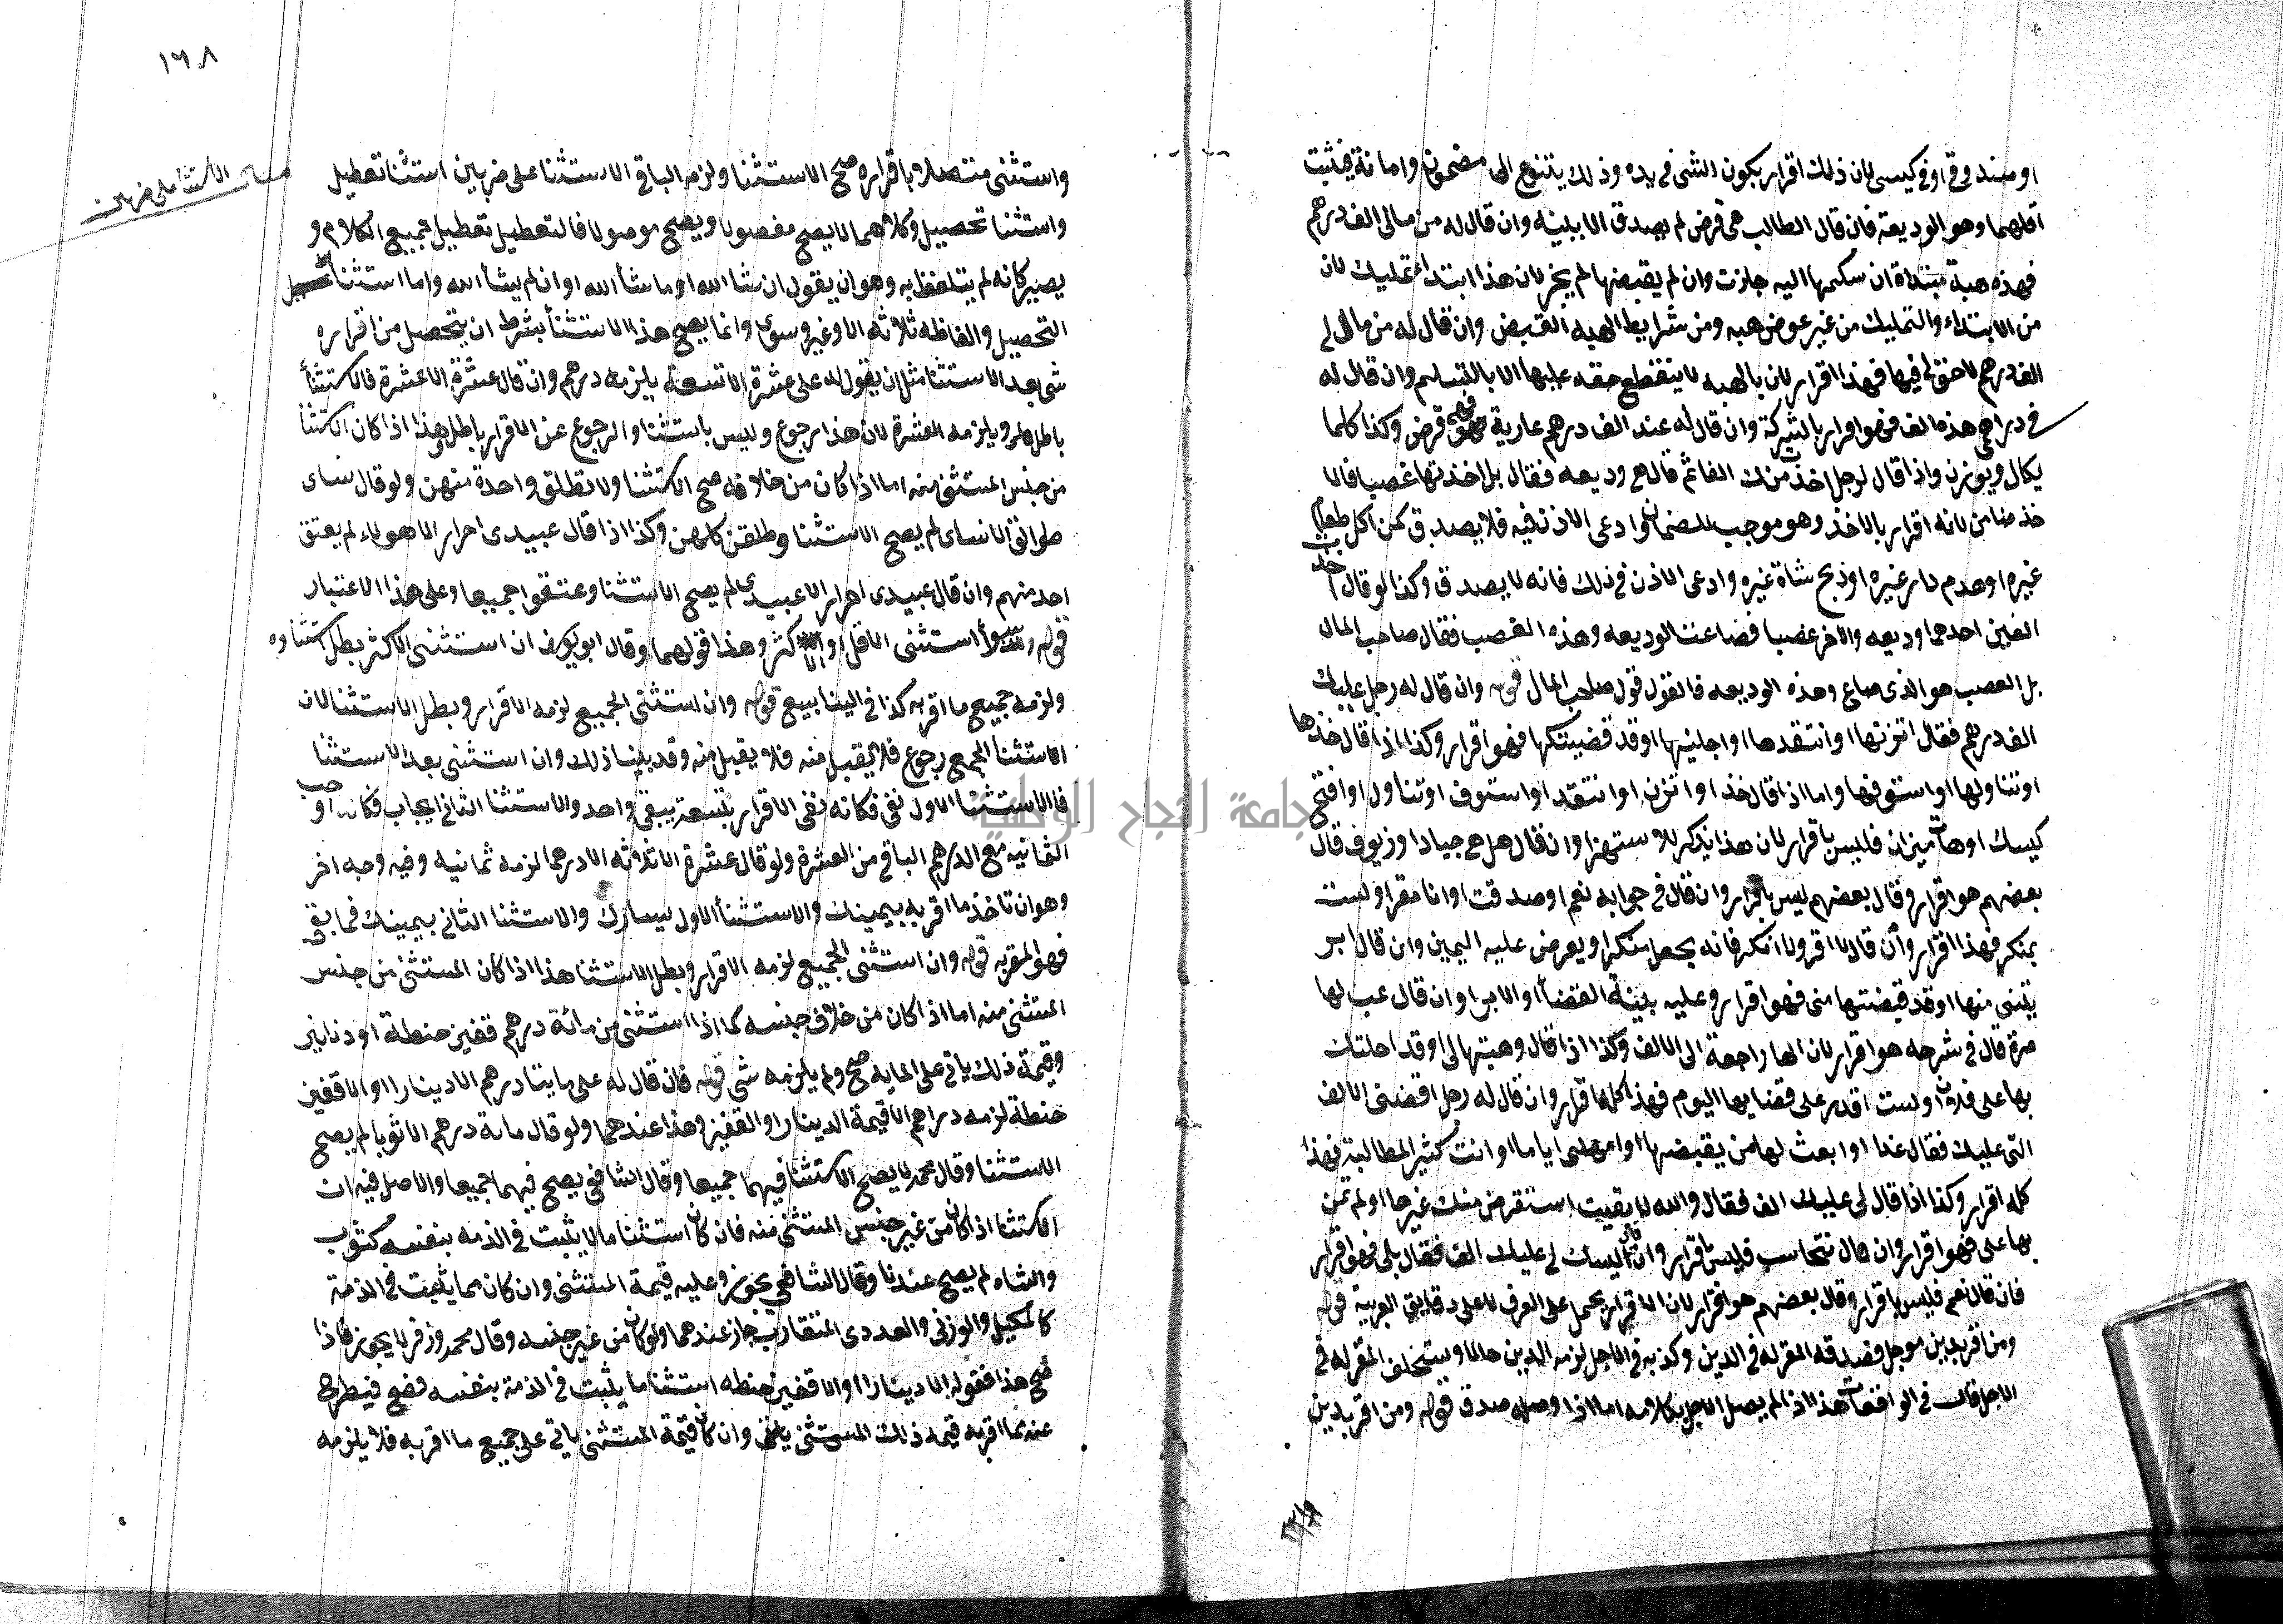 او صندوقي او في كيسي لان ذلك اقرار بكون الشي في يده وذلك يتنوع الى مضمون وامانة فيثبت
اقلهما وهو الوديعة فان قال الطالب هي قرض لم يصدق الا ببينه وان قال له من مالي الف درهم
فهذه هبة مبتداة ان سلمها اليه جازت وان لم يقبضها لم يجز لان هذا ابتداء تمليك لان
من الابتداء والتمليك من غير عوض هبه ومن شرايط الهبه القبض وان قال له من مالي
الف درهم لا حق لي فيها فهذا اقرار لان بالهبه لا ينقطع حقه عليها الا بالتسليم وان قال له
في دراهمي هذه الف فهو اقرار بالشركة وان قال له عند الف درهم عارية فهي قرض وكذا كلما
يكال ويوزن واذا قال لرجل اخذت منك الفا ثم قال هي وديعه فقال بل اخذتها غصبا فالا
خذ ضامن لانه اقرار بالاخذ وهو موجب للضمان وادعى الاذن فيه فلا يصدق كمن اكل طعام
غيره او هدم دار غيره او ذبح شاة غيره وادعى الاذن في ذلك فانه لا يصدق وكذا لو قال اخذت
الفين احدهما وديعه والاخر غصبا فضاعت الوديعه وهذه الغصب فقال صاحب المال
بل الغصب هو الذى ضاع وهذه الوديعه فالقول قول صاحب المال قوله وان قال له رجل عليك
الف درهم فقال اتزنها او انتقدها او اجلنيها او قد قضيتكها فهو اقرار وكذا اذا قال خذها
او تناولها او استوفها واما اذا قال خذ او اتزن او انتقد او استوف او تناول او افتح
كيسك او هات ميزان فليس باقرار لان هذا يذكر للاستهزا وان قال هل هي جيادا وزيوف قال
بعضهم هو اقرار وقال بعضهم ليس باقرار وان قال في جوابه نعم او صدقت او انا مقر او لست
بمنكر فهذا اقرار وان قال لا اقر ولا انكر فانه يجعل منكرا ويعرض عليه اليمين وان قال ابر
يتني منها او قد قبضتها مني فهو اقرار وعليه بينة القضاء او الابرا وان قال هب لها
مرة قال في شرحه هو اقرار لان الها راجعة الى الالف وكذا اذا قال وهبتها لي او قد احلتك
بها على فلان او لست اقدر على قضايها اليوم فهذا كلها اقرار وان قال له رجل اقضني الالف
التي عليك فقال غدا او ابعث لها من يقبضها او امهلني اياما او انت كثير المطالبة فهذا
كله اقرار وكذا اذا قال لي عليك الف فقال والله لا بقيت استقرض منك غيرها او لم تمن
بها على فهو اقرار وان قال نتحاسب فليس باقرار وان قال اليس لي عليك الف فقال بلى فهو اقرار
فان قال نعم فليس باقرار وقال بعضهم هو اقرار لان الاقرار يحمل على العرف لا على دقايق العربية قوله
ومن اقر بدين موجل فصدقه المقر له في الدين وكذبه في الاجل لزمه الدين حالا ويستحلف المقر له في
الاجل قال في الواقعات هذا اذا لم يصل الاجل بكلامه اما اذا وصله صدق قوله ومن اقر بدين
١٦٨
واستثنى متصلا باقراره صح الاستثنا ولزمه الباقي الاستثنا على ضربين استثنا تعطيل
مـ الاستثنا على ضربين
واستثنا تحصيل وكلاهما لا يصح مفصولا ويصح موصولا فالتعطيل تعطيل جميع الكلام و
يصير كانه لم يتلفظ به وهو ان يقول ان شا الله او ما شا الله او ان لم يشا الله واما استثنا
التحصيل والفاظه ثلاثه الا وغير وسوى وانما يصح هذا الاستثنا بشرط ان يتحصل من اقراره
شى بعد الاستثنا مثل ان يقول له على عشرة الا تسعة يلزمه درهم وان قال عشرة الا عشرة فالاستثنا
باطل ويلزمه العشرة لان هذا رجوع وليس باستثنا والرجوع عن الاقرار باطل وهذا اذا كان الاستثنا
من جنس المستثنى منه اما اذا كان من خلافه صح الاستثنا ولا تطلق واحدة منهن ولو قال نساى
طوالق الا نساى لم يصح الاستثنا وطلقن كلهن وكذا اذا قال عبيدى احرار الا هولاء لم يعتق
احد منهم وان قال عبيدى احرار الا عبيدى لم يصح الاستثنا وعتقوا جميعا وعلى هذا الاعتبار
قوله وسوا استثنى الاقل او الاكثر وهذا قولهما وقال ابو يوسف ان استثنى الاكثر بطل استثناوه
ولزمه جميع ما اقر به كذا في الينابيع قوله وان استثنى الجميع لزمه الاقرار وبطل الاستثنا لان
استثنا الجميع رجوع فلا يقبل منه وقد بينا ذلك وان استثنى بعد الاستثنا
فالاستثنا الاول نفى فكانه نفى الاقرار بتسعة يبقى واحد والاستثنا الثاني ايجاب فكانه اوجب
الثمانيه مع الدرهم الباقي من العشرة ولو قال عشرة الا ثلاثه الا درهما لزمه ثمانيه وفيه وجه اخر
وهو ان تاخذ ما اقر به بيمينك والاستثنا الاول بيسارك والاستثنا الثاني بيمينك فما بقي
فهو المقر به قوله وان استثنى الجميع لزمه الاقرار وبطل الاستثنا هذا اذا كان المستثنى من جنس
المستثنى منه اما اذا كان من خلاف جنسه كما اذا استثنى من مائة درهم قفيز حنطة او دنانير
وقيمة ذلك ياتي على المايه صح ولم يلزمه شى قوله فان قال له على مايتا درهم الا دينارا او الا قفيز
حنطة لزمه دراهم الا قيمة الدينار او القفيز وهذا عندهما ولو قال مائة درهم الا ثوبا لم يصح
الاستثنا وقال محمد لا يصح الاستثنا فيهما جميعا وقال الشافعي يصح فيهما جميعا والاصل فيه ان
الاستثنا اذا كان من غير جنس المستثنى منه فان كان استثنا ما لا يثبت في الذمه بنفسه كثوب
والشاه لم يصح عندنا وقال الشافعي يجوز وعليه قيمة المستثنى وان كان مما يثبت في الذمة
كالمكيل والوزنى والعددى المتقارب جاز عندهما ولو كان من غير جنسه وقال محمد وزفر لا يجوز فاذا
صح هذا فقوله الا دينارا او الا قفيز حنطه استثنا ما يثبت في الذمة بنفسه فصح فيطرح
عنه مما اقر به قيمه ذلك المستثنى وان كان قيمة المستثنى ياتي على جميع ما اقر به فلا يلزمه
جامعة النجاح الوطنية